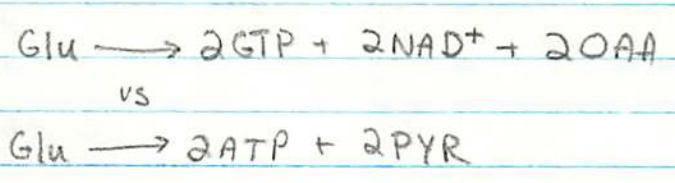 Glu → 2GTP + 2NAD⁺ + 2OAA
vs
Glu → 2ATP + 2PYR